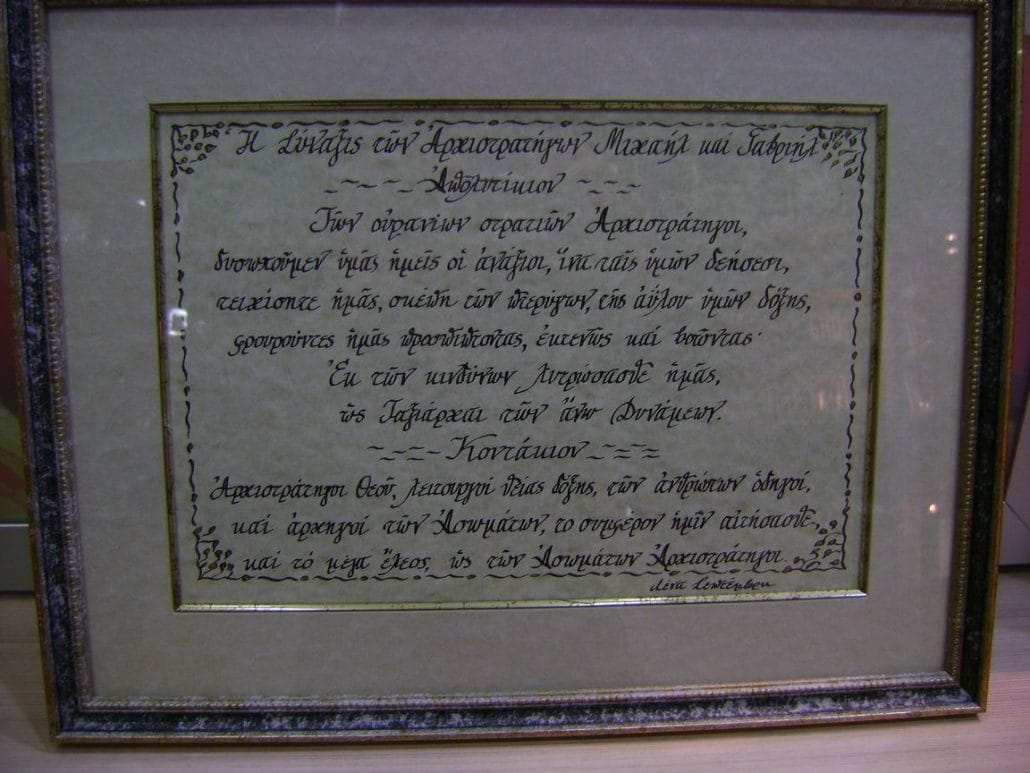 Ἡ Σύναξις τῶν Ἀρχιστρατήγων Μιχαήλ καί Γαβριήλ
Ἀπολυτίκιον
Τῶν οὐρανίων στρατιῶν Ἀρχιστράτηγοι,
δυσωποῦμεν ὑμᾶς ἡμεῖς οἱ ἀνάξιοι, ἵνα ταῖς ὑμῶν δεήσεσι,
τειχίσητε ἡμᾶς, σκέπῃ τῶν πτερύγων, τῆς ἀΰλου ὑμῶν δόξης,
φρουροῦντες ἡμᾶς προσπίπτοντας, ἐκτενῶς καί βοῶντας·
Ἐκ τῶν κινδύνων λυτρώσασθε ἡμᾶς,
ὡς Ταξιάρχαι τῶν ἄνω Δυνάμεων.
Κοντάκιον
Ἀρχιστράτηγοι Θεοῦ, λειτουργοί θείας δόξης, τῶν ἀνθρώπων ὁδηγοί,
καί ἀρχηγοί τῶν Ἀσωμάτων, το συμφέρον ἡμῖν αἰτήσασθε,
καί τό μέγα ἔλεος, ὡς τῶν Ἀσωμάτων Ἀρχιστράτηγοι.
Λένα Σεπτέμβου